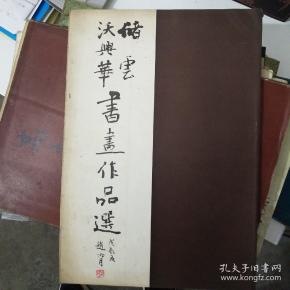 儲雲
沃興華
書畫作品選
戊辰夏
趙冷月
孔夫子旧书网